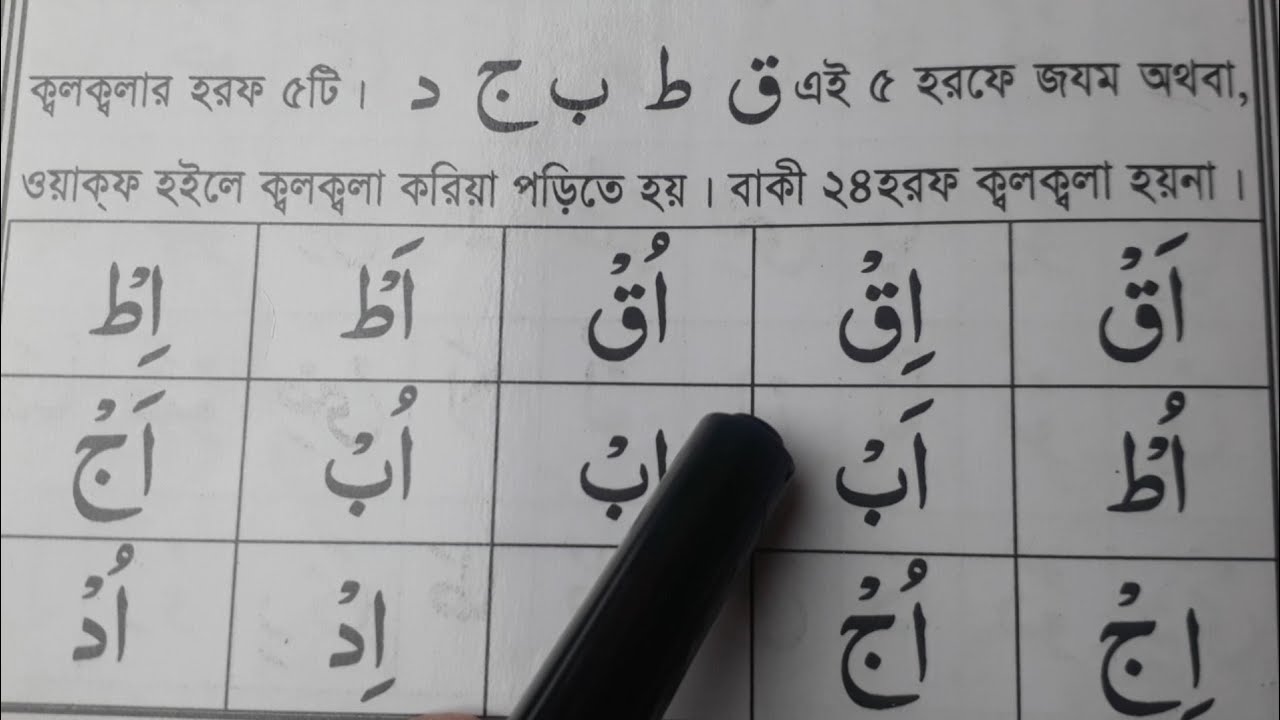 ক্বলক্বলার হরফ ৫টি। ق ط ب ج د এই ৫ হরফে জযম অথবা,
ওয়াক্ফ হইলে ক্বলক্বলা করিয়া পড়িতে হয়। বাকী ২৪হরফ ক্বলক্বলা হয়না।
اَقْ اِقْ اُقْ اَطْ اِطْ
اُطْ اَبْ ابْ اُبْ اَجْ
اِجْ اُجْ اِدْ اُدْ